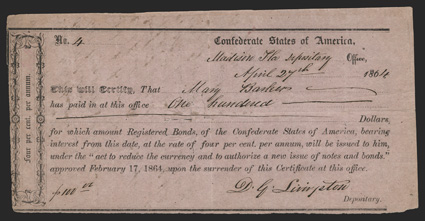 No. 4
Confederate States of America,
Madison Fla Depositary Office,
April 27th 1864
This will Certify, That Mary
has paid in at this office One hundred
Dollars,
for which amount Registered Bonds, of the Confederate States of America, bearing
interest from this date, at the rate of four per cent. per annum, will be issued to him,
under the "act to reduce the currency and to authorize a new issue of notes and bonds."
approved February 17, 1864, upon the surrender of this Certificate at this office.
$100 00
D. G. Livingston
Depositary.
Four per cent. per annum.